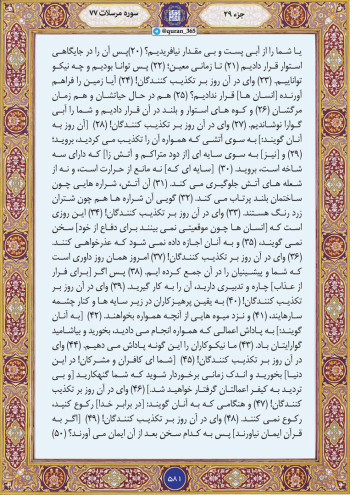 جزء ۲۹
@quran_365
سوره مرسلات ۷۷
یا شما را از آبی پست و بی مقدار نیافریدیم؟ (۲۰)پس آن را در جایگاهی
استوار قرار دادیم (۲۱) تا زمانی معین؛ (۲۲) پس توانا بودیم و چه نیکو
تواناییم. (۲۳) وای در آن روز بر تکذیب کنندگان! (۲۴) آیا زمین را فراهم
آورنده [انسان ها] قرار ندادیم؟ (۲۵) هم در حال حیاتشان و هم زمان
مرگشان (۲۶) و کوه های استوار و بلند در آن قرار دادیم و شما را آبی
گوارا نوشاندیم. (۲۷) وای در آن روز بر تکذیب کنندگان! (۲۸) [آن روز به
آنان گویند:] به سوی آتشی که همواره آن را تکذیب می کردید، بروید؛
(۲۹) و [نیز] به سوی سایه ای [از دود متراکم و آتش زا] که دارای سه
شاخه است، بروید. (۳۰) [سایه ای که] نه مانع از حرارت است، و نه از
شعله های آتش جلوگیری می کند. (۳۱) آن آتش، شراره هایی چون
ساختمان بلند پرتاب می کند. (۳۲) گویی آن شراره ها هم چون شتران
زرد رنگ هستند. (۳۳) وای در آن روز بر تکذیب کنندگان! (۳۴) این روزی
است که [انسان ها چون موقعیتی نمی بینند برای دفاع از خود] سخن
نمی گویند، (۳۵) و به آنان اجازه داده نمی شود که عذرخواهی کنند.
(۳۶) وای در آن روز بر تکذیب کنندگان! (۳۷) امروز همان روز داوری است
که شما و پیشینیان را در آن جمع کرده ایم. (۳۸) پس اگر [برای فرار
از عذاب] چاره و تدبیری دارید، آن را به کار گیرید. (۳۹) وای در آن روز بر
تکذیب کنندگان! (۴۰) به یقین پرهیزکاران در زیر سایه ها و کنار چشمه
سارهایند، (۴۱) و نزد میوه هایی از آنچه همواره بخواهند. (۴۲) [به آنان
گویند:] به پاداش اعمالی که همواره انجام می دادید، بخورید و بیاشامید
گوارایتان باد. (۴۳) ما نیکوکاران را این گونه پاداش می دهیم. (۴۴) وای
در آن روز بر تکذیب کنندگان! (۴۵) [شما ای کافران و مشرکان! در این
دنیا] بخورید و اندک زمانی برخوردار شوید که شما گنهکارید [و بی
تردید به کیفر اعمالتان گرفتار خواهید شد.] (۴۶) وای در آن روز بر تکذیب
کنندگان! (۴۷) و هنگامی که به آنان گویند: [در برابر خدا] رکوع کنید،
رکوع نمی کنند. (۴۸) وای در آن روز بر تکذیب کنندگان! (۴۹) [اگر به
قرآن ایمان نیاورند] پس به کدام سخن بعد از آن ایمان می آورند؟ (۵۰)
۵۸۱